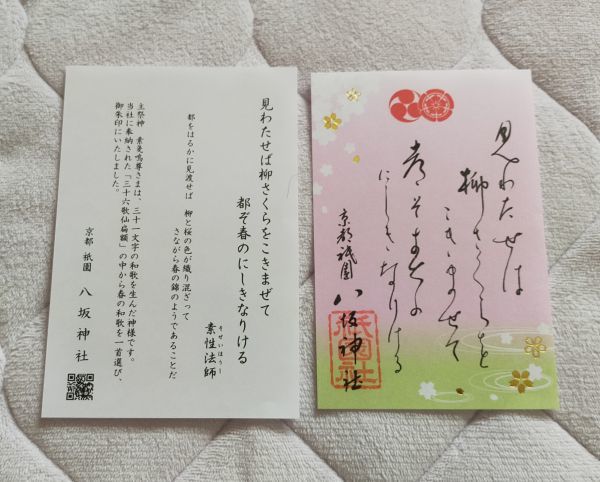 見わたせば柳さくらをこきまぜて
都ぞ春のにしきなりける
そせいほうし
素性法師
都をはるかに見渡せば 柳と桜の色が織り混ざって
さながら春の錦のようであることだ
主祭神 素戔嗚尊さまは、三十一文字の和歌を生んだ神様です。
当社に奉納された「三十六歌仙扁額」の中から春の和歌を一首選び、
御朱印にいたしました。
京都 祇園 八坂神社
見わたせは
柳さくらを
こきませて
都そ春の
にしきなりける
京都祇園
八坂神社
祇園社